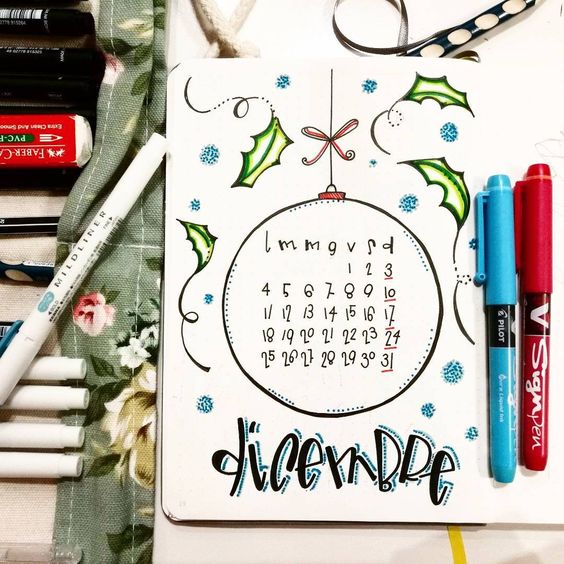 l m m g v s d
1 2 3
4 5 6 7 8 9 10
11 12 13 14 15 16 17
18 19 20 21 22 23 24
25 26 27 28 29 30 31
dicembre
FABER-CA
Extra Clean And Smoo
PVC-F
MILDLINER
PILOT
V Sign pen